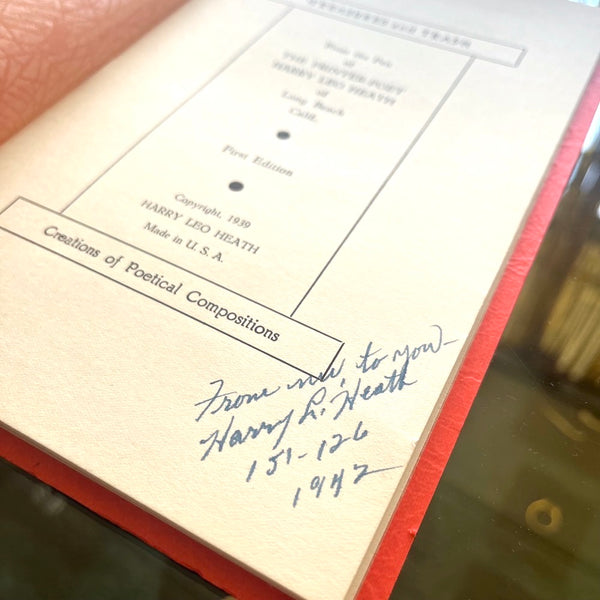 From the Pen
of
THE PRINTER-POET
HARRY LEO HEATH
of
Long Beach
Calif.
First Edition
Copyright, 1939
HARRY LEO HEATH
Made in U. S. A.
Creations of Poetical Compositions
From me, to you—
Harry L. Heath
151-126
1942